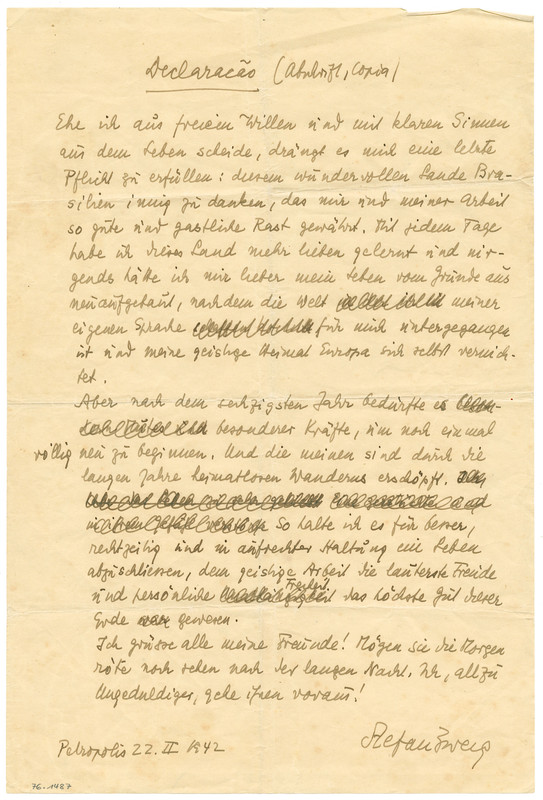 Declaracão (Abschrift, Copia)
Ehe ich aus freiem Willen und mit klaren Sinnen
aus dem Leben scheide, drängt es mich eine letzte
Pflicht zu erfüllen: diesem wundervollen Lande Bra-
silien innig zu danken, das mir und meiner Arbeit
so gute und gastliche Rast gewährt. Mit jedem Tage
habe ich dieses Land mehr lieben gelernt und nir-
gends hätte ich mir lieber mein Leben vom Grunde aus
neu aufgebaut, nachdem die Welt meiner
eigenen Sprache für mich untergegangen
ist und meine geistige Heimat Europa sich selbst vernich-
tet.
Aber nach dem sechzigsten Jahr bedürfte es
besonderer Kräfte, um noch einmal
völlig neu zu beginnen. Und die meinen sind durch die
langen Jahre heimatlosen Wanderns erschöpft.
So halte ich es für besser,
rechtzeitig und in aufrechter Haltung ein Leben
abzuschliessen, dem geistige Arbeit die lauterste Freude
und persönliche Freiheit das höchste Gut dieser
Erde gewesen.
Ich grüsse alle meine Freunde! Mögen sie die Morgen
röte noch sehen nach der langen Nacht. Ich, allzu
Ungeduldiger, gehe ihnen voraus!
Stefan Zweig
Petropolis 22. II 1942
76.1487